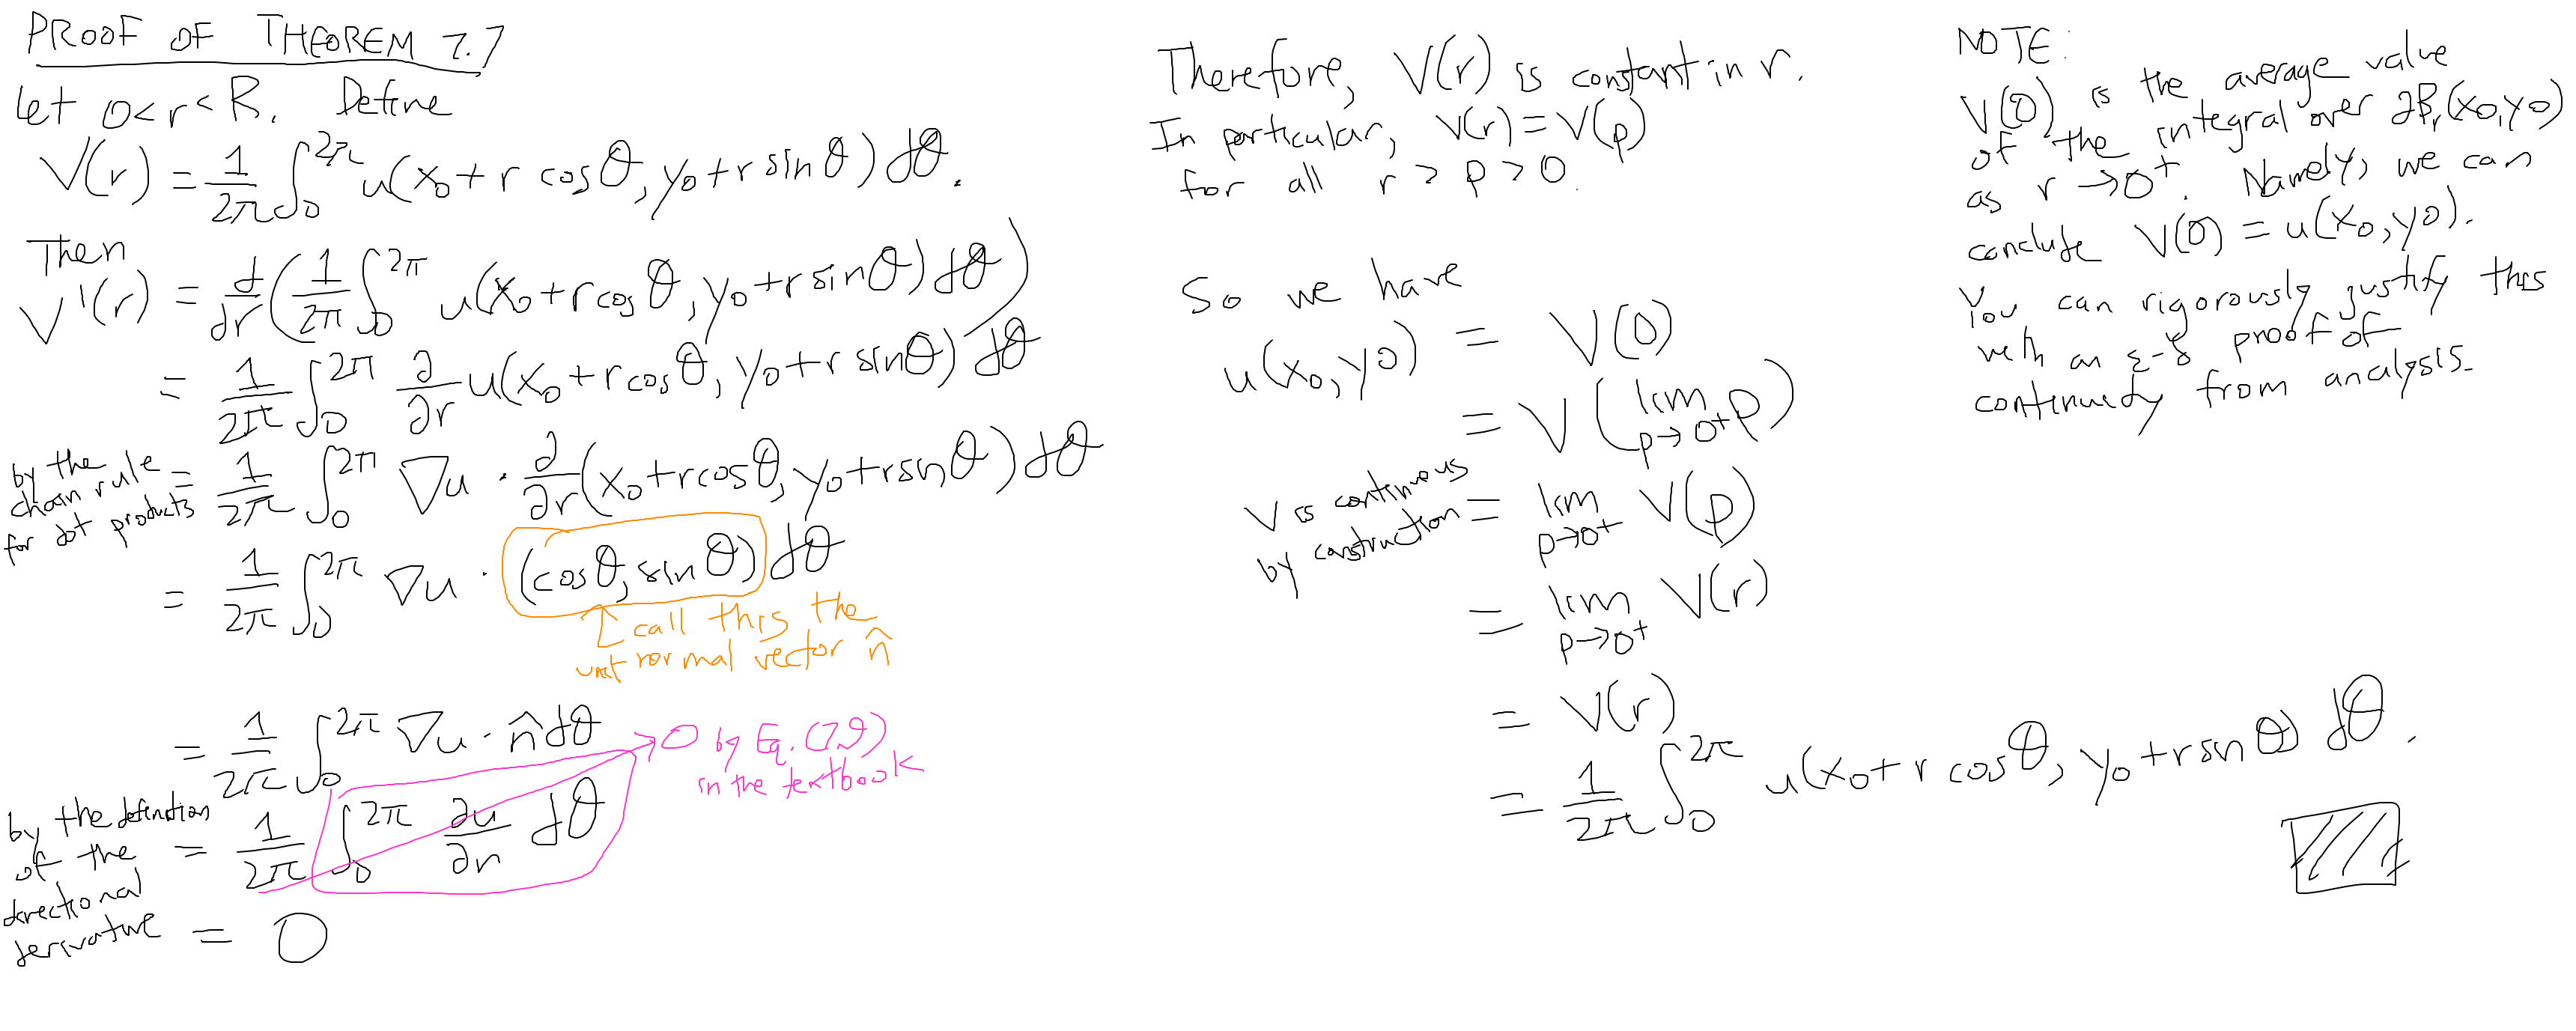 PROOF OF THEOREM 7.7
Let 0<r<R. Define
V(r) = \frac{1}{2π} ∫_0^{2π} u(x_0+r cosθ, y_0+r sinθ) dθ.
Then
V'(r) = \frac{d}{dr}(\frac{1}{2π} ∫_0^{2π} u(x_0+r cosθ, y_0+r sinθ) dθ)
= \frac{1}{2π} ∫_0^{2π} \frac{∂}{∂r} u(x_0+r cosθ, y_0+r sinθ) dθ
by the chain rule for dot products = \frac{1}{2π} ∫_0^{2π} ∇u · \frac{∂}{∂r}(x_0+r cosθ, y_0+r sinθ) dθ
= \frac{1}{2π} ∫_0^{2π} ∇u · (cosθ, sinθ) dθ
↑ call this the
unit normal vector n̂
= \frac{1}{2π} ∫_0^{2π} ∇u · n̂ dθ
→ 0 by Eq. (7.9)
in the textbook
by the definition of the directional derivative = \frac{1}{2π} ∫_0^{2π} \frac{∂u}{∂n} dθ
= 0
Therefore, V(r) is constant in r.
In particular, V(r) = V(p)
for all r > p > 0.
So we have
u(x_0, y_0) = V(0)
= V(lim_{p→0^+} p)
V is continuous by construction = lim_{p→0^+} V(p)
= lim_{p→0^+} V(r)
= V(r)
= \frac{1}{2π} ∫_0^{2π} u(x_0+r cosθ, y_0+r sinθ) dθ.
NOTE:
V(0) is the average value
of the integral over ∂B_r(x_0,y_0)
as r→0^+. Namely, we can
conclude V(0) = u(x_0,y_0).
You can rigorously justify this
with an ε-δ proof of
continuity from analysis.